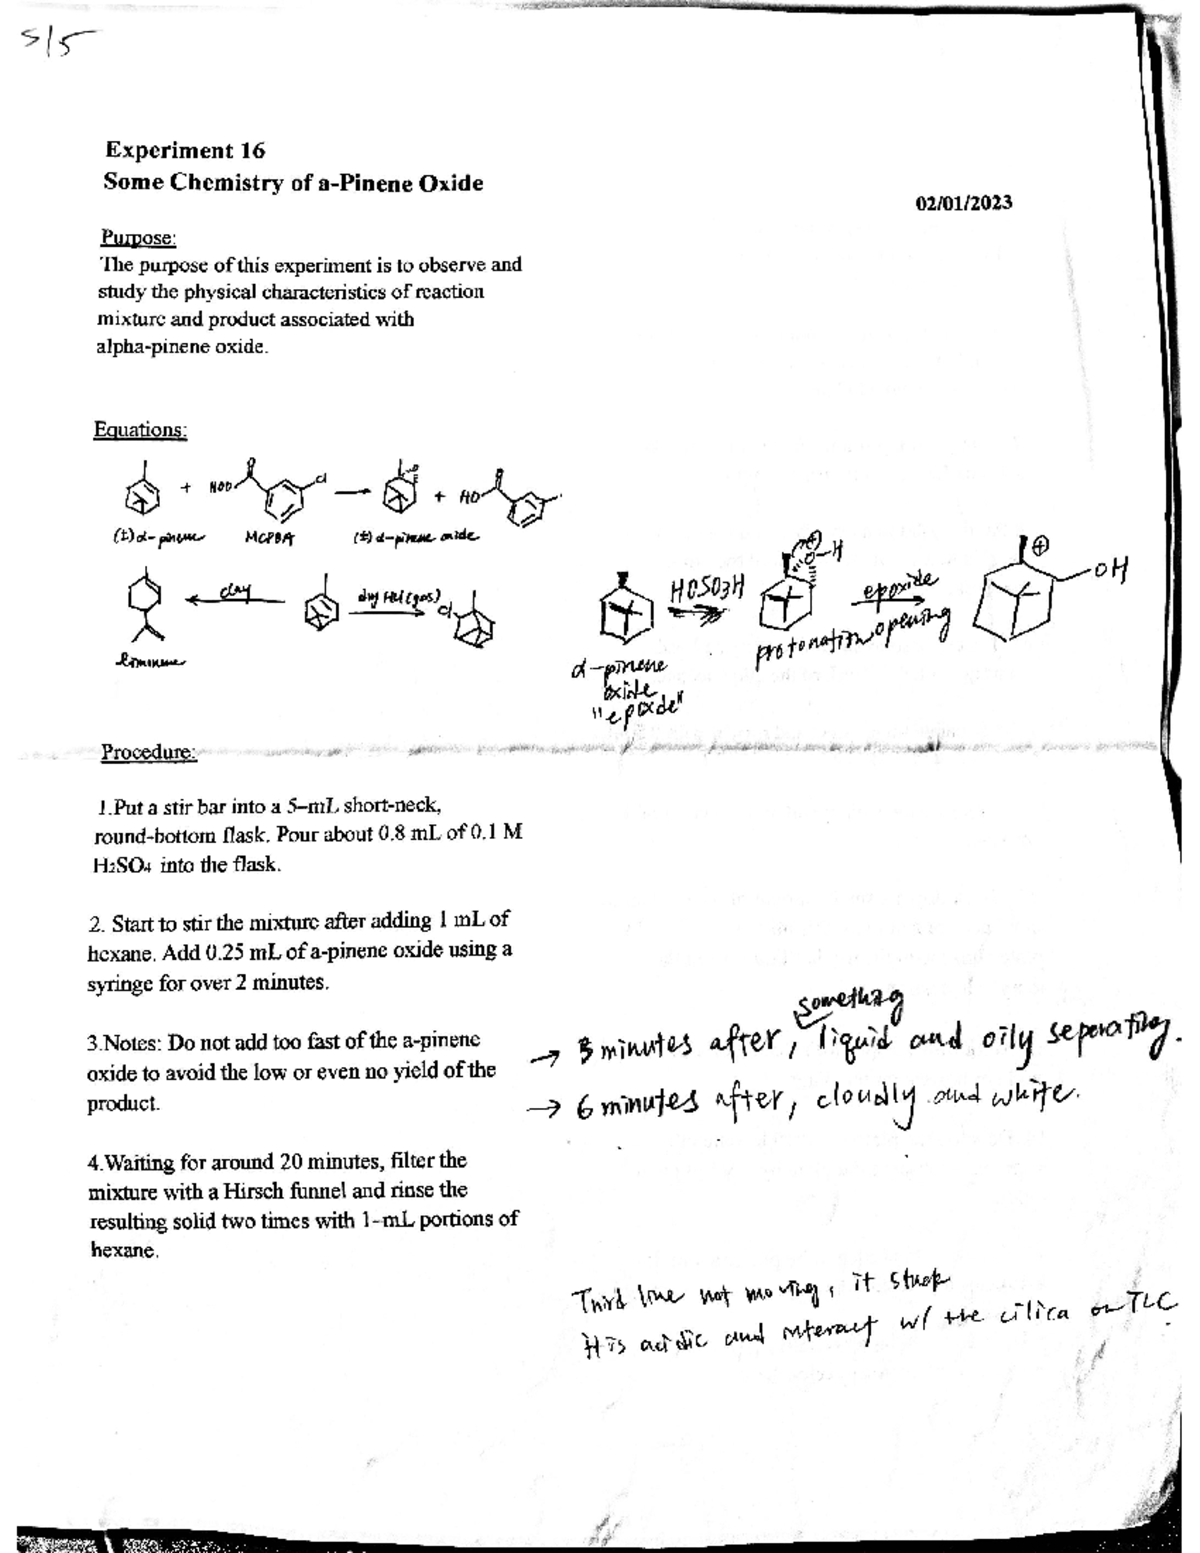 5/5
Experiment 16
Some Chemistry of a-Pinene Oxide
02/01/2023
Purpose:
The purpose of this experiment is to observe and
study the physical characteristics of reaction
mixture and product associated with
alpha-pinene oxide.
Equations:
+ HOO Cl + HO
(±) α-pinene MCPBA (±) α-pinene oxide
clay dry HCl (gas) Cl
liminene
HOSO3H
O-H
epoxide
opening
protonation
OH
α-pinene
oxide
"epoxde"
Procedure:
1.Put a stir bar into a 5–mL short-neck,
round-bottom flask. Pour about 0.8 mL of 0.1 M
H2SO4 into the flask.
2. Start to stir the mixture after adding 1 mL of
hexane. Add 0.25 mL of a-pinene oxide using a
syringe for over 2 minutes.
3.Notes: Do not add too fast of the a-pinene
oxide to avoid the low or even no yield of the
product.
something
→ 3 minutes after, liquid and oily seperating.
→ 6 minutes after, cloudly and white.
4.Waiting for around 20 minutes, filter the
mixture with a Hirsch funnel and rinse the
resulting solid two times with 1-mL portions of
hexane.
Third line not moving, it stuck
It is acidic and interact w/ the cilica on TLC.